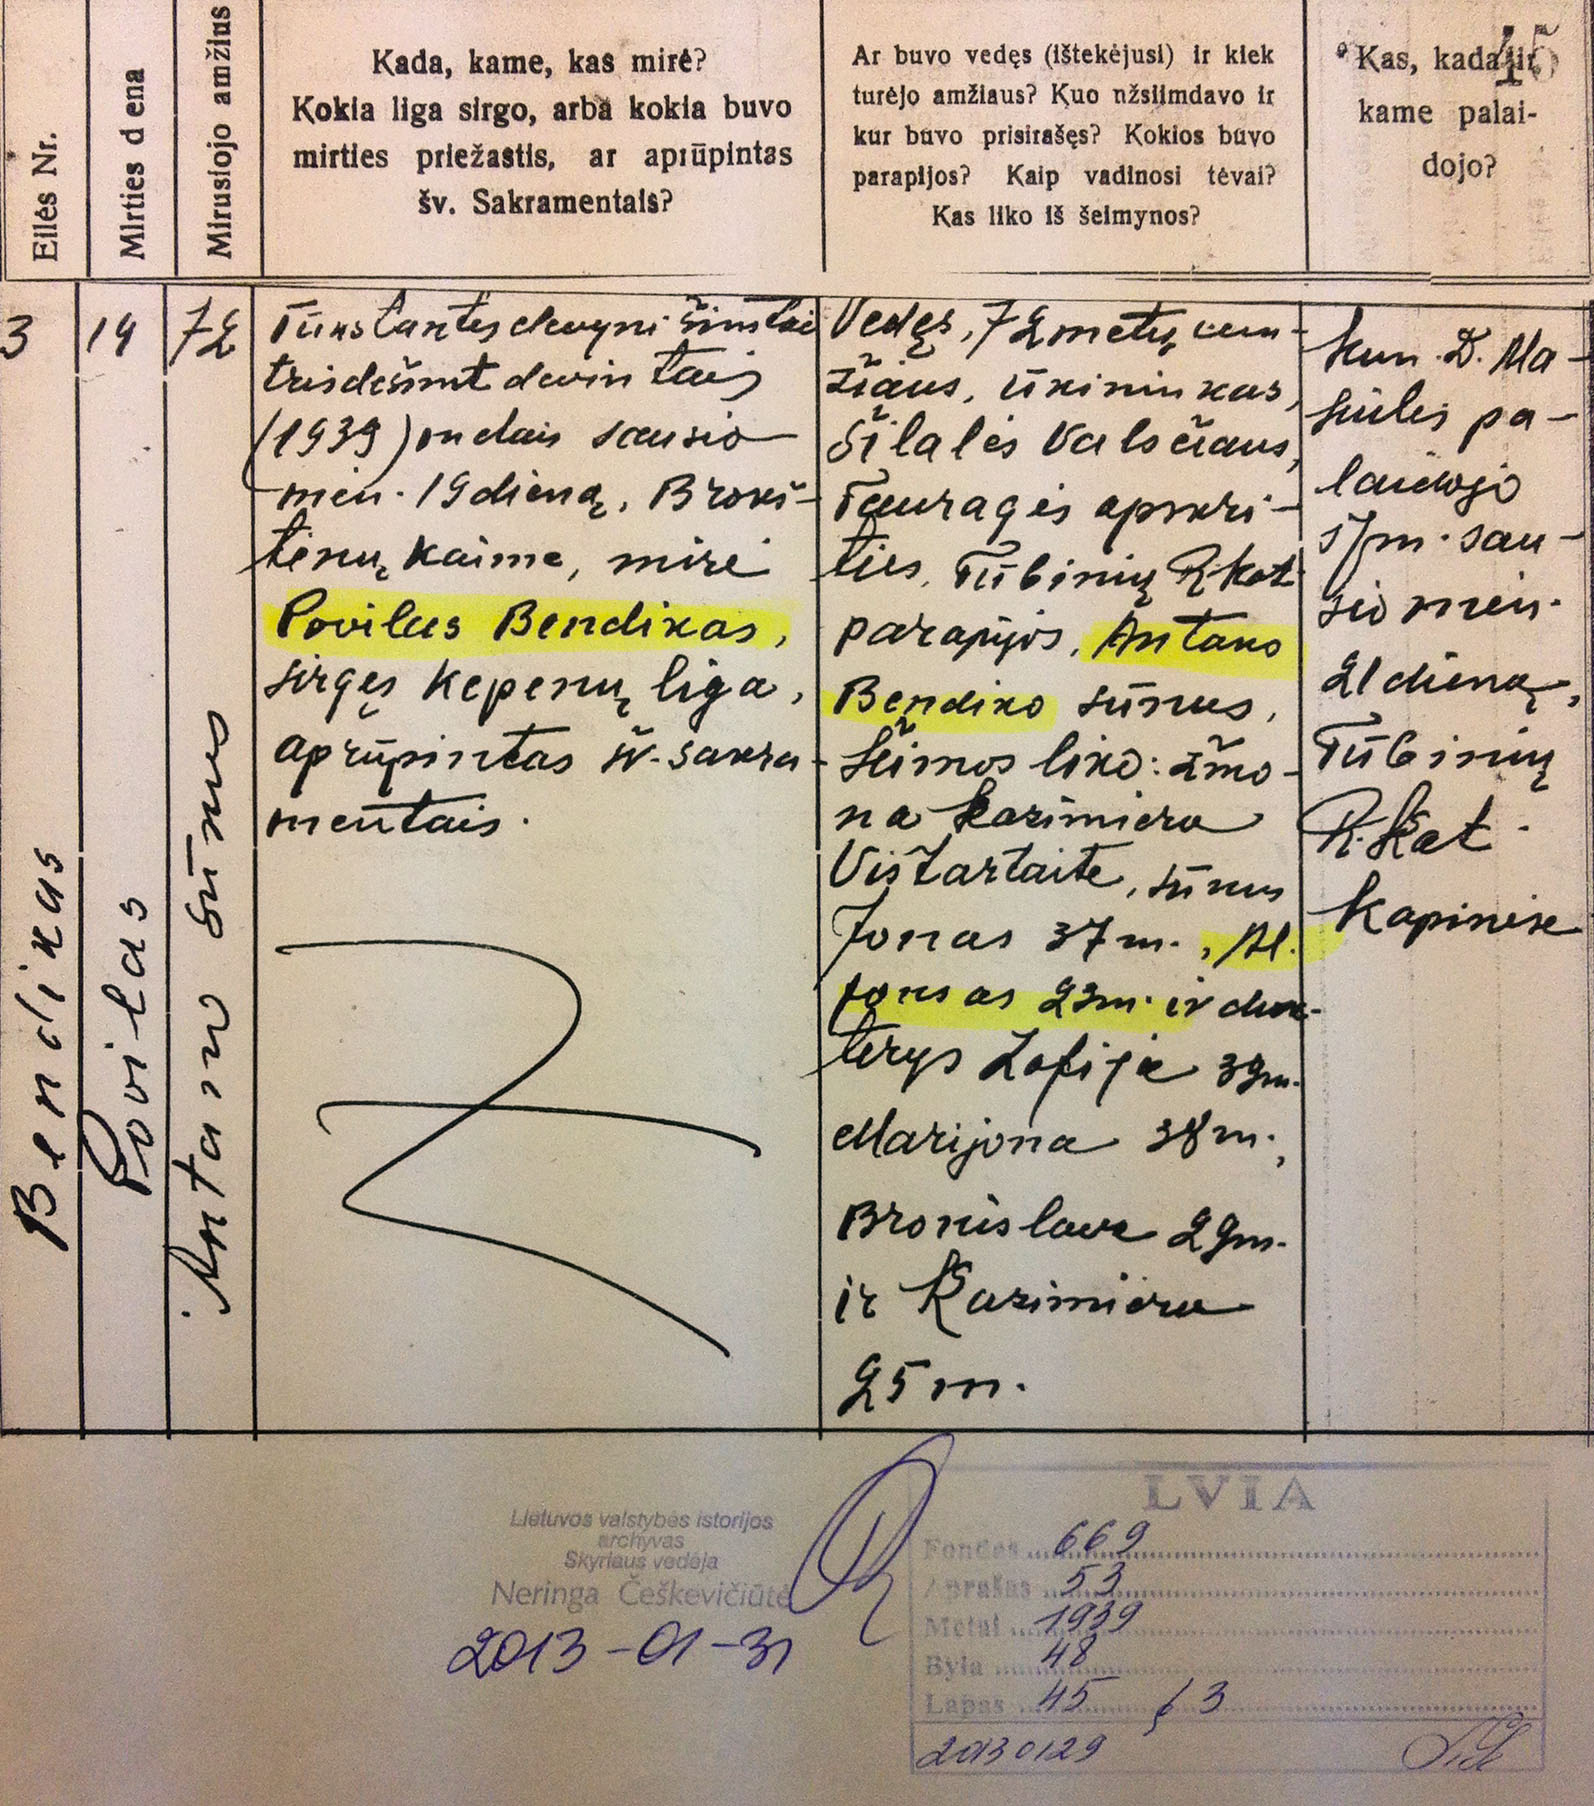 45
Eilės Nr.
Mirties d ena
Mirusiojo amžius
Kada, kame, kas mirė?
Kokia liga sirgo, arba kokia buvo
mirties priežastis, ar aprūpintas
šv. Sakramentais?
Ar buvo vedęs (ištekėjusi) ir kiek
turėjo amžiaus? Kuo nžsiimdavo ir
kur buvo prisirašęs? Kokios buvo
parapijos? Kaip vadinosi tėvai?
Kas liko iš šeimynos?
Kas, kada ir
kame palai-
dojo?
3
19
72
Bendikas
Povilas
Antano sūnus
Tūkstantis devyni šimtai
trisdešimt devintais
(1939) metais sausio
mėn. 19 dieną, Brokš-
tėnų kaime, mirė
Povilas Bendikas,
sirgęs kepenų liga,
aprūpintas šv. sakra-
mentais.
Vedęs, 72 metų am-
žiaus, ūkininkas,
Šilalės valsčiaus,
Tauragės apskri-
ties, Tūbinių R. kat.
parapijos, Antano
Bendiko sūnus,
šeimos liko: žmo-
na Kazimiera
Vištartaitė, sūnus
Jonas 37 m., Al-
fonsas 23 m. ir duk-
terys Zofija 39 m.
Marijona 38 m.,
Bronislava 29 m.
ir Kazimiera
25 m.
Kun. D. Ma-
siulis pa-
laidojo
š/m. sau-
sio mėn.
21 dieną,
Tūbinių
R. Kat.
Kapinėse
Lietuvos valstybės istorijos
archyvas
Skyriaus vedėja
Neringa Češkevičiūtė
2013-01-31
LVIA
Fondas 669
Aprašas 53
Metai 1939
Byla 48
Lapas 45 ţ 3
20130129